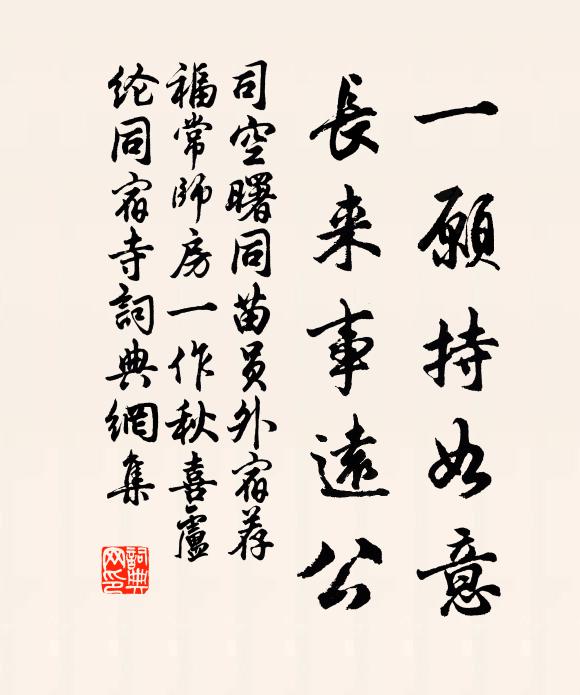 一願持如意
長来事遠公
司空曙同苗员外宿荐
福常師房一作秋喜盧
纶同宿寺詞典網集
詞典网印